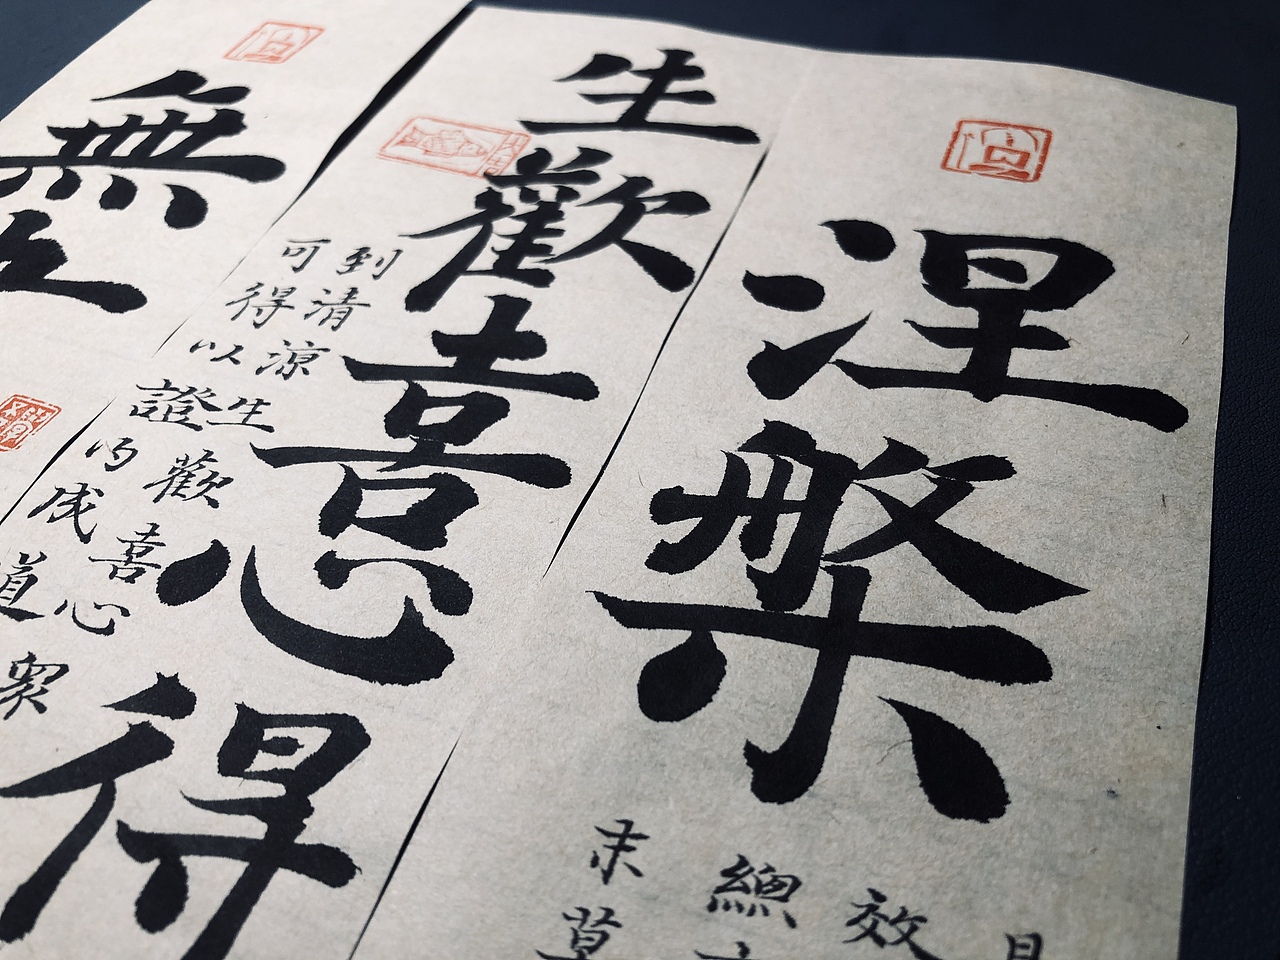 涅槃
效
總
生歡喜心得
到清涼生歡喜心眾
可得以證乃成道
無